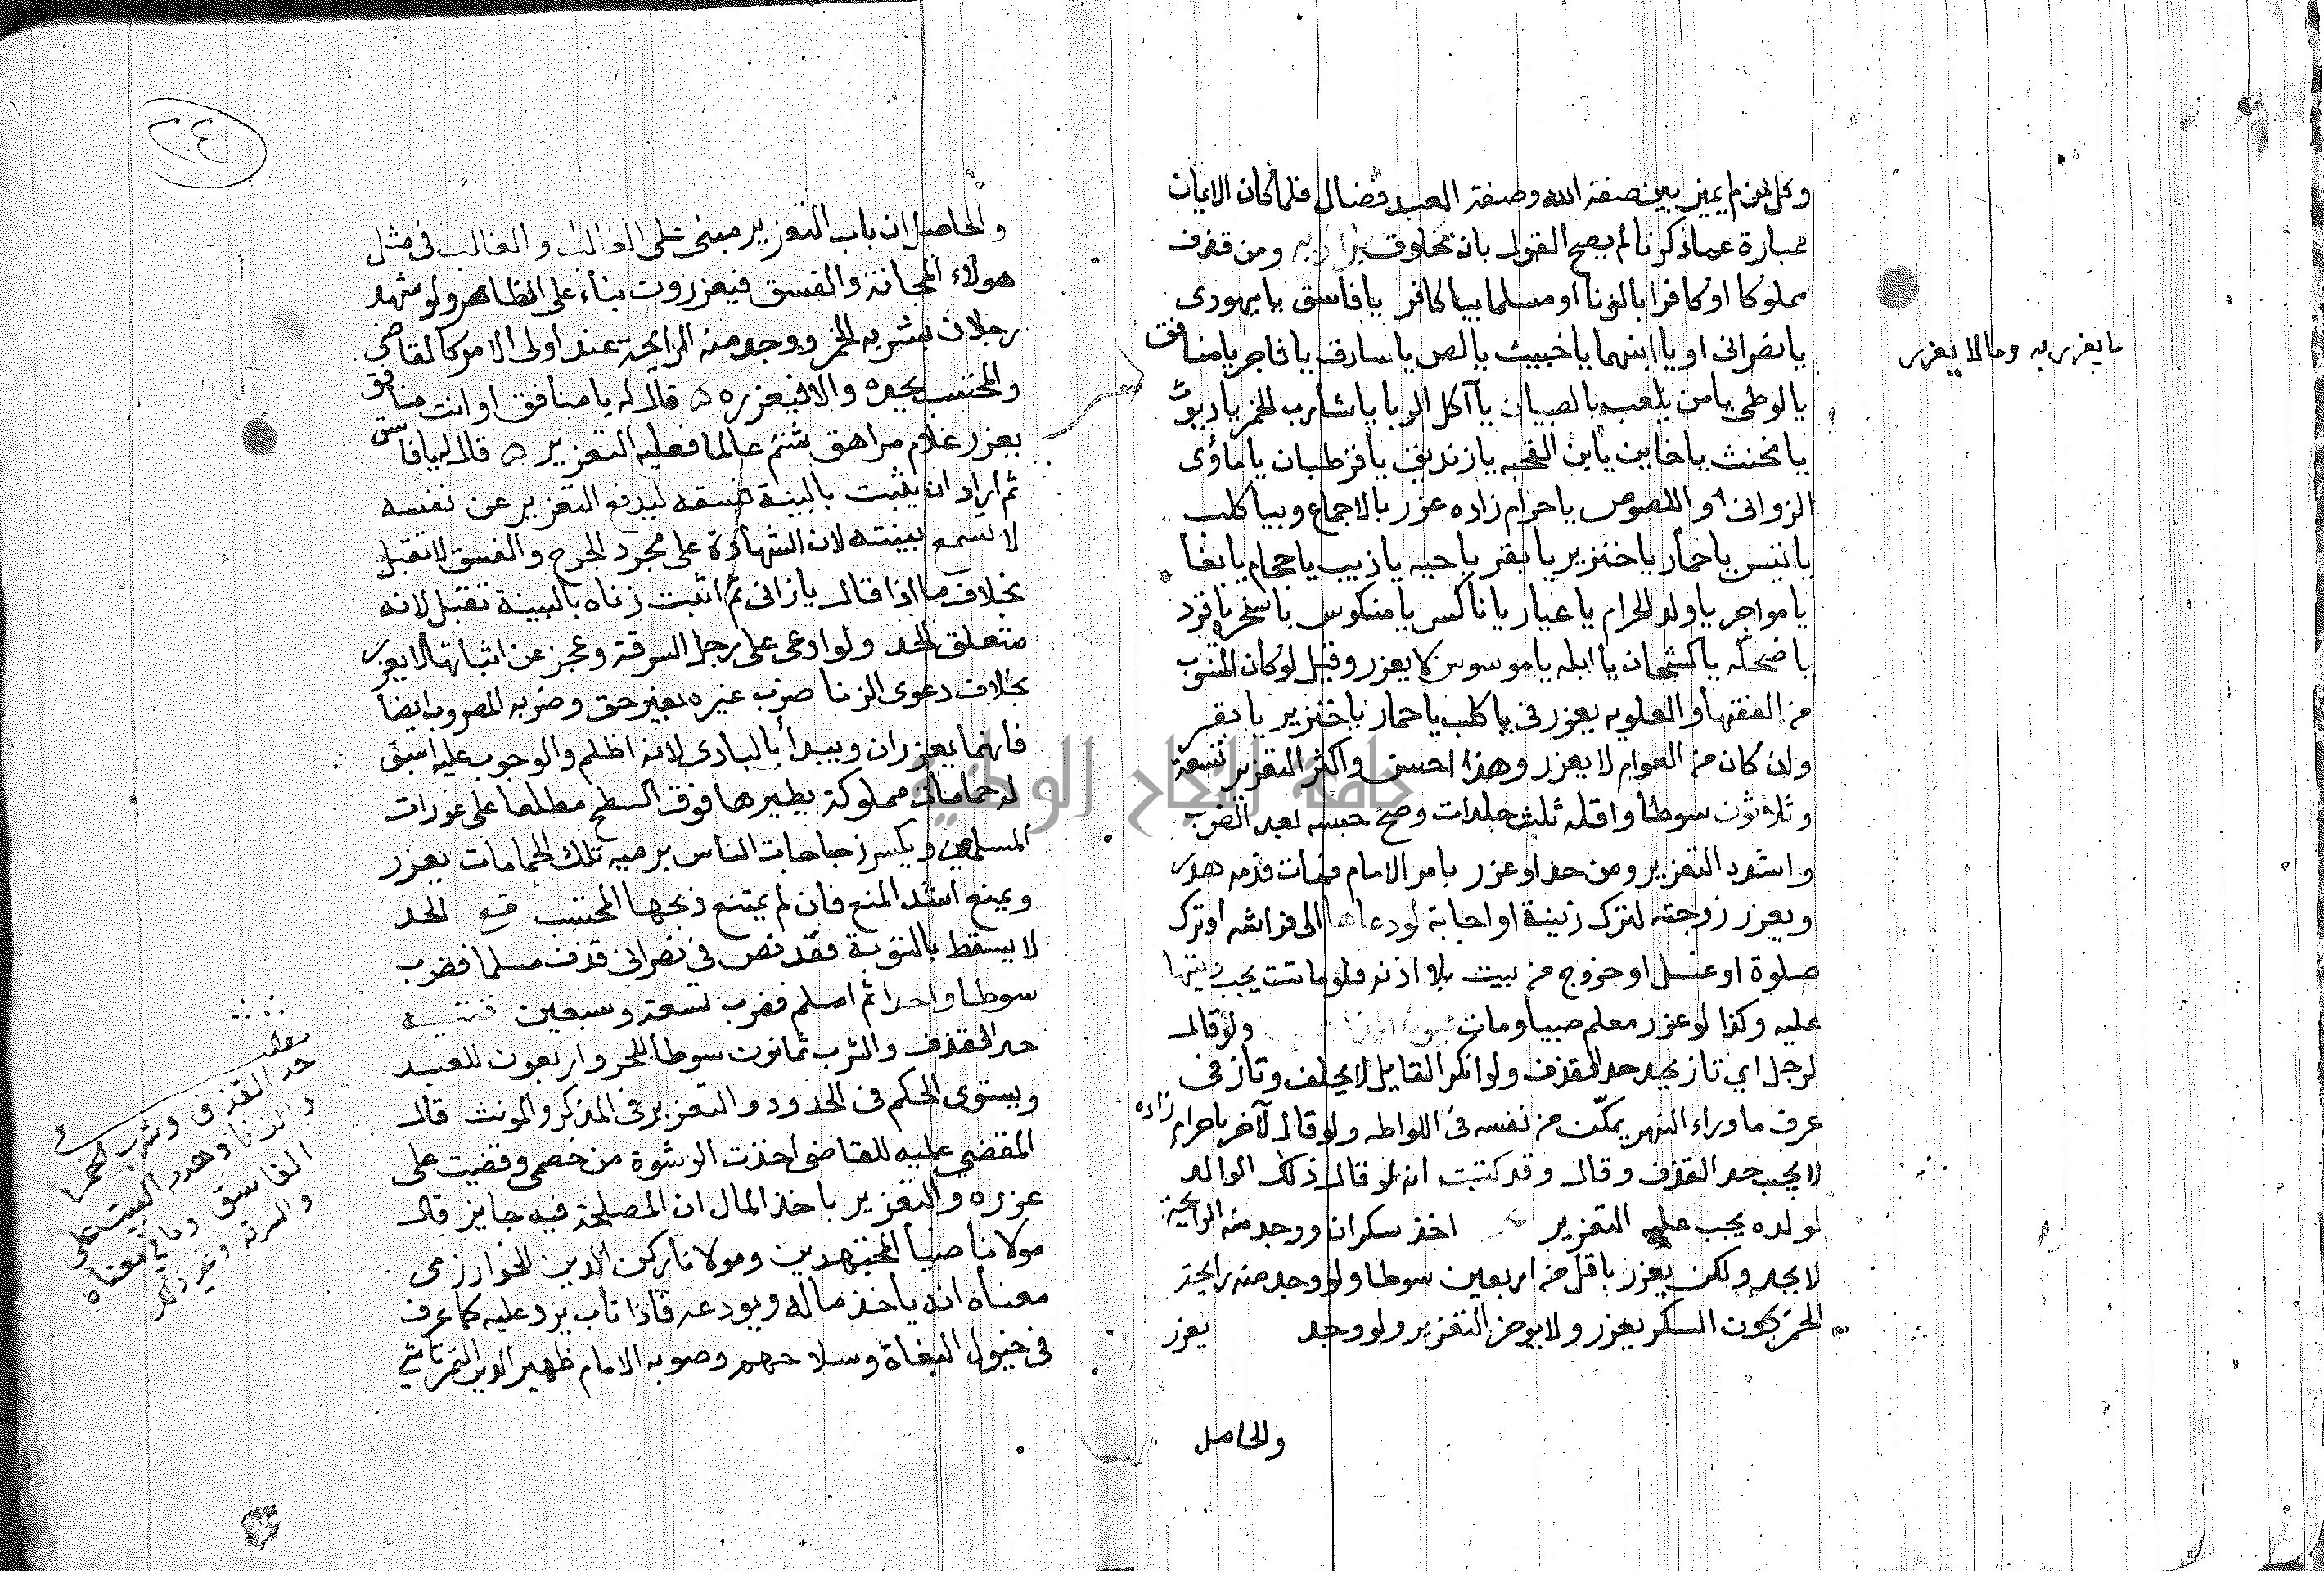 وكل من لم يميز بين صفة الله وصفة العبد فضال فلما كان الايمان
عبارة عما ذكرنا لم يصح القول بانه مخلوق ومن قذف
مملوكا او كافرا بالزنا او مسلما بيا كافر يا فاسق يا يهودى
يا نصرانى او يا ابنهما يا خبيث يا لص يا سارق يا فاجر يا منافق
يا لوطى يا من يلعب بالصبيان يا آكل الربا يا شارب الخمر يا ديوث
يا مخنث يا خاين يا ابن القحبه يا زنديق يا قرطبان يا ماؤى
الزوانى او اللصوص يا حرام زاده عزر بالاجماع وبيا كلب
يا تيس يا حمار يا خنزير يا بقر يا حيه يا ذيب يا حجام يا بغا
يا مواجر يا ولد الحرام يا عيار يا ناكس يا منكوس يا سخره يا قرد
يا ضحكه يا كشخان يا ابله يا موسوس لا يعزر وقيل لو كان المنسوب
من الفقها او العلويه يعزر فى يا كلب يا حمار يا خنزير يا بقر
وان كان من العوام لا يعزر وهذا احسن واكثر التعزير تسعة
وثلاثون سوطا واقله ثلث جلدات وصح حبسه بعد الضرب
واشد التعزير ومن حد او عزر بامر الامام فمات فدمه هدر
ويعزر زوجته لترك زينة او اجابة لو دعاها الى فراشه او ترك
صلوة او غسل او خروج من بيت بلا اذنه فلو ماتت يجب ديتها
عليه وكذا لو عزر معلم صبيا ومات ولو قال
لرجل اي تاز يحد حد القذف ولو انكر القايل لا يحلف وتاز فى
عرف ما وراء النهر يمكّن من نفسه فى اللواطه ولو قال لآخر يا حرام زاده
لا يجب حد القذف وقال وقد كتبت انه لو قال ذلك الوالد
لولده يجب عليه التعزير اخذ سكران ووجد منه الرايحة
لا يحد ولكن يعزر باقل من اربعين سوطا ولو وجد منه رايحة
الخمر دون السكر يعزر ولا يوخر التعزير ولو وجد يعزر
والحاصل
ما يعزر به وما لا يعزر
٢٤٠
والحاصل ان باب التعزير مبنى على الغالب والغالب فى مثل
هولاء المجانة والفسق فيعزرون بناء على الظاهر ولو شهد
رجلان بشربه الخمر ووجد منه الرايحة عند اولى الامر كالقاضى
والمحتسب يحده والا فيعزره ٥ قال له يا منافق او انت منافق
يعزر غلام مراهق شتم عالما فعليه التعزير ٥ قال له يا فاسق
ثم اراد ان يثبت بالبينة فسقه ليدفع التعزير عن نفسه
لا تسمع بينته لان الشهادة على مجرد الجرح والفسق لا تقبل
بخلاف ما اذا قال يا زانى ثم اثبت زناه بالبينة تقبل لانه
متعلق الحد ولو ادعى على رجل السرقة وعجز عن اثباتها لا يعزر
بخلاف دعوى الزنا ضرب غيره بغير حق وضربه المضروب ايضا
فانهما يعزران ويبدأ بالبادى لانه اظلم والوجوب عليه اسبق
له حمامات مملوكة يطيرها فوق السطح مطلعا على عورات
المسلمين ويكسر زجاجات الناس برميه تلك الحمامات يعزر
ويمنع اشد المنع فان لم يمتنع ذبحها المحتسب الحد
لا يسقط بالتوبة فقد نص فى نصرانى قذف مسلما فضرب
سوطا واحدا ثم اسلم فضرب تسعة وسبعين
حد القذف والشرب ثمانون سوطا للحر واربعون للعبد
ويستوى الحكم فى الحدود والتعزير فى المذكر والمونث قال
المقضي عليه للقاضى اخذت الرشوة من خصمى وقضيت على
عزره والتعزير باخذ المال ان المصلحة فيه جايز قال
مولانا ضيا المجتهدين ومولانا ركن الدين الخوارزمى
معناه انه ياخذ ماله ويودعه فاذا تاب يرد عليه كما عرف
فى خيول البغاة وسلاحهم وصوبه الامام ظهير الدين التمرتاشي
مطلب فى
حد القذف وشرب الخمر
والزنا وهدم البيت على
الفاسق وما فى معناه
والسرقه وغير ذلك
جامعة النجاح الوطنية